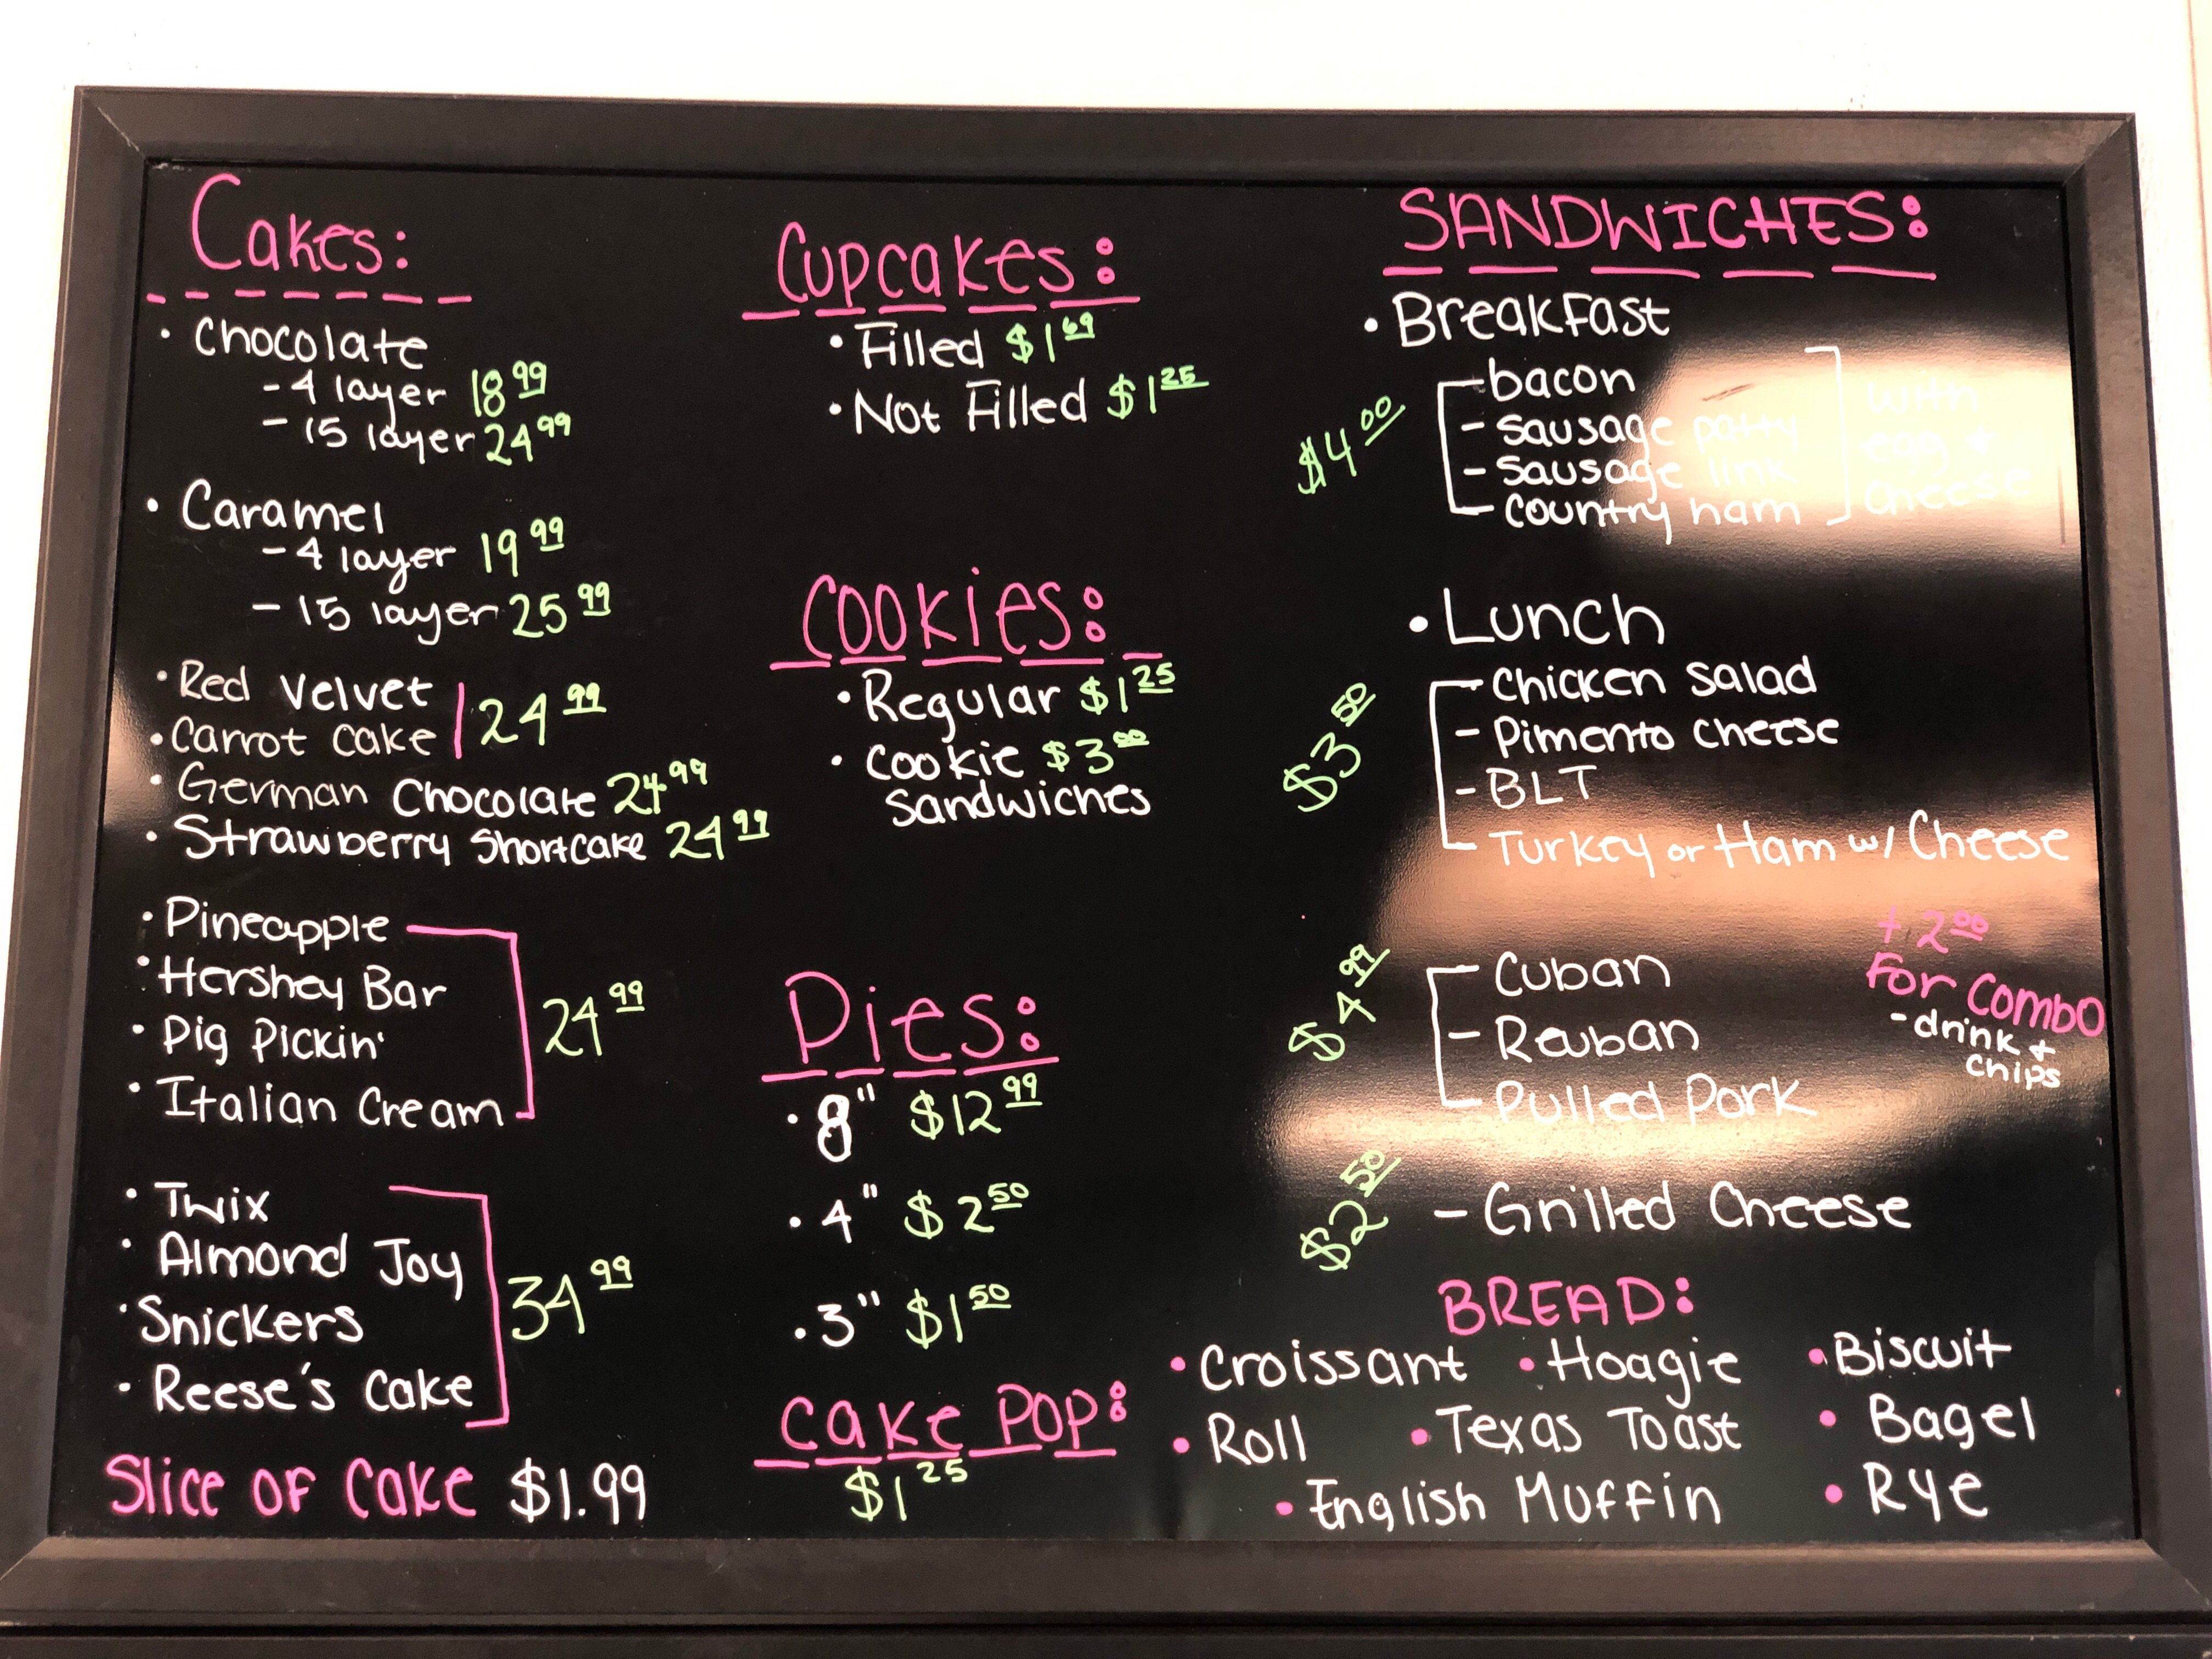 Cakes:
• Chocolate
- 4 layer 18 99
- 15 layer 24 99
• Caramel
- 4 layer 19 99
- 15 layer 25 99
• Red Velvet
• Carrot Cake
24 99
• German Chocolate 24 99
• Strawberry Shortcake 24 99
• Pineapple
• Hershey Bar
• Pig Pickin'
• Italian Cream
24 99
• Twix
• Almond Joy
• Snickers
• Reese's Cake
34 99
Slice of Cake $1.99
Cupcakes:
• Filled $1 69
• Not Filled $1 25
Cookies:
• Regular $1 25
• Cookie $3 00
Sandwiches
Pies:
• 8" $12 99
• 4" $2 50
• 3" $1 50
Cake Pop:
$1 25
SANDWICHES:
• Breakfast
$4 00
- bacon
- Sausage patty
- Sausage link
- Country ham
with
egg +
Cheese
• Lunch
$3 50
- Chicken Salad
- Pimento Cheese
- BLT
- Turkey or Ham w/ Cheese
$4 99
- Cuban
- Reuban
- Pulled Pork
+ 2 00
For Combo
- drink +
chips
$2 50
- Grilled Cheese
BREAD:
• Croissant • Hoagie • Biscuit
• Roll • Texas Toast • Bagel
• English Muffin • Rye